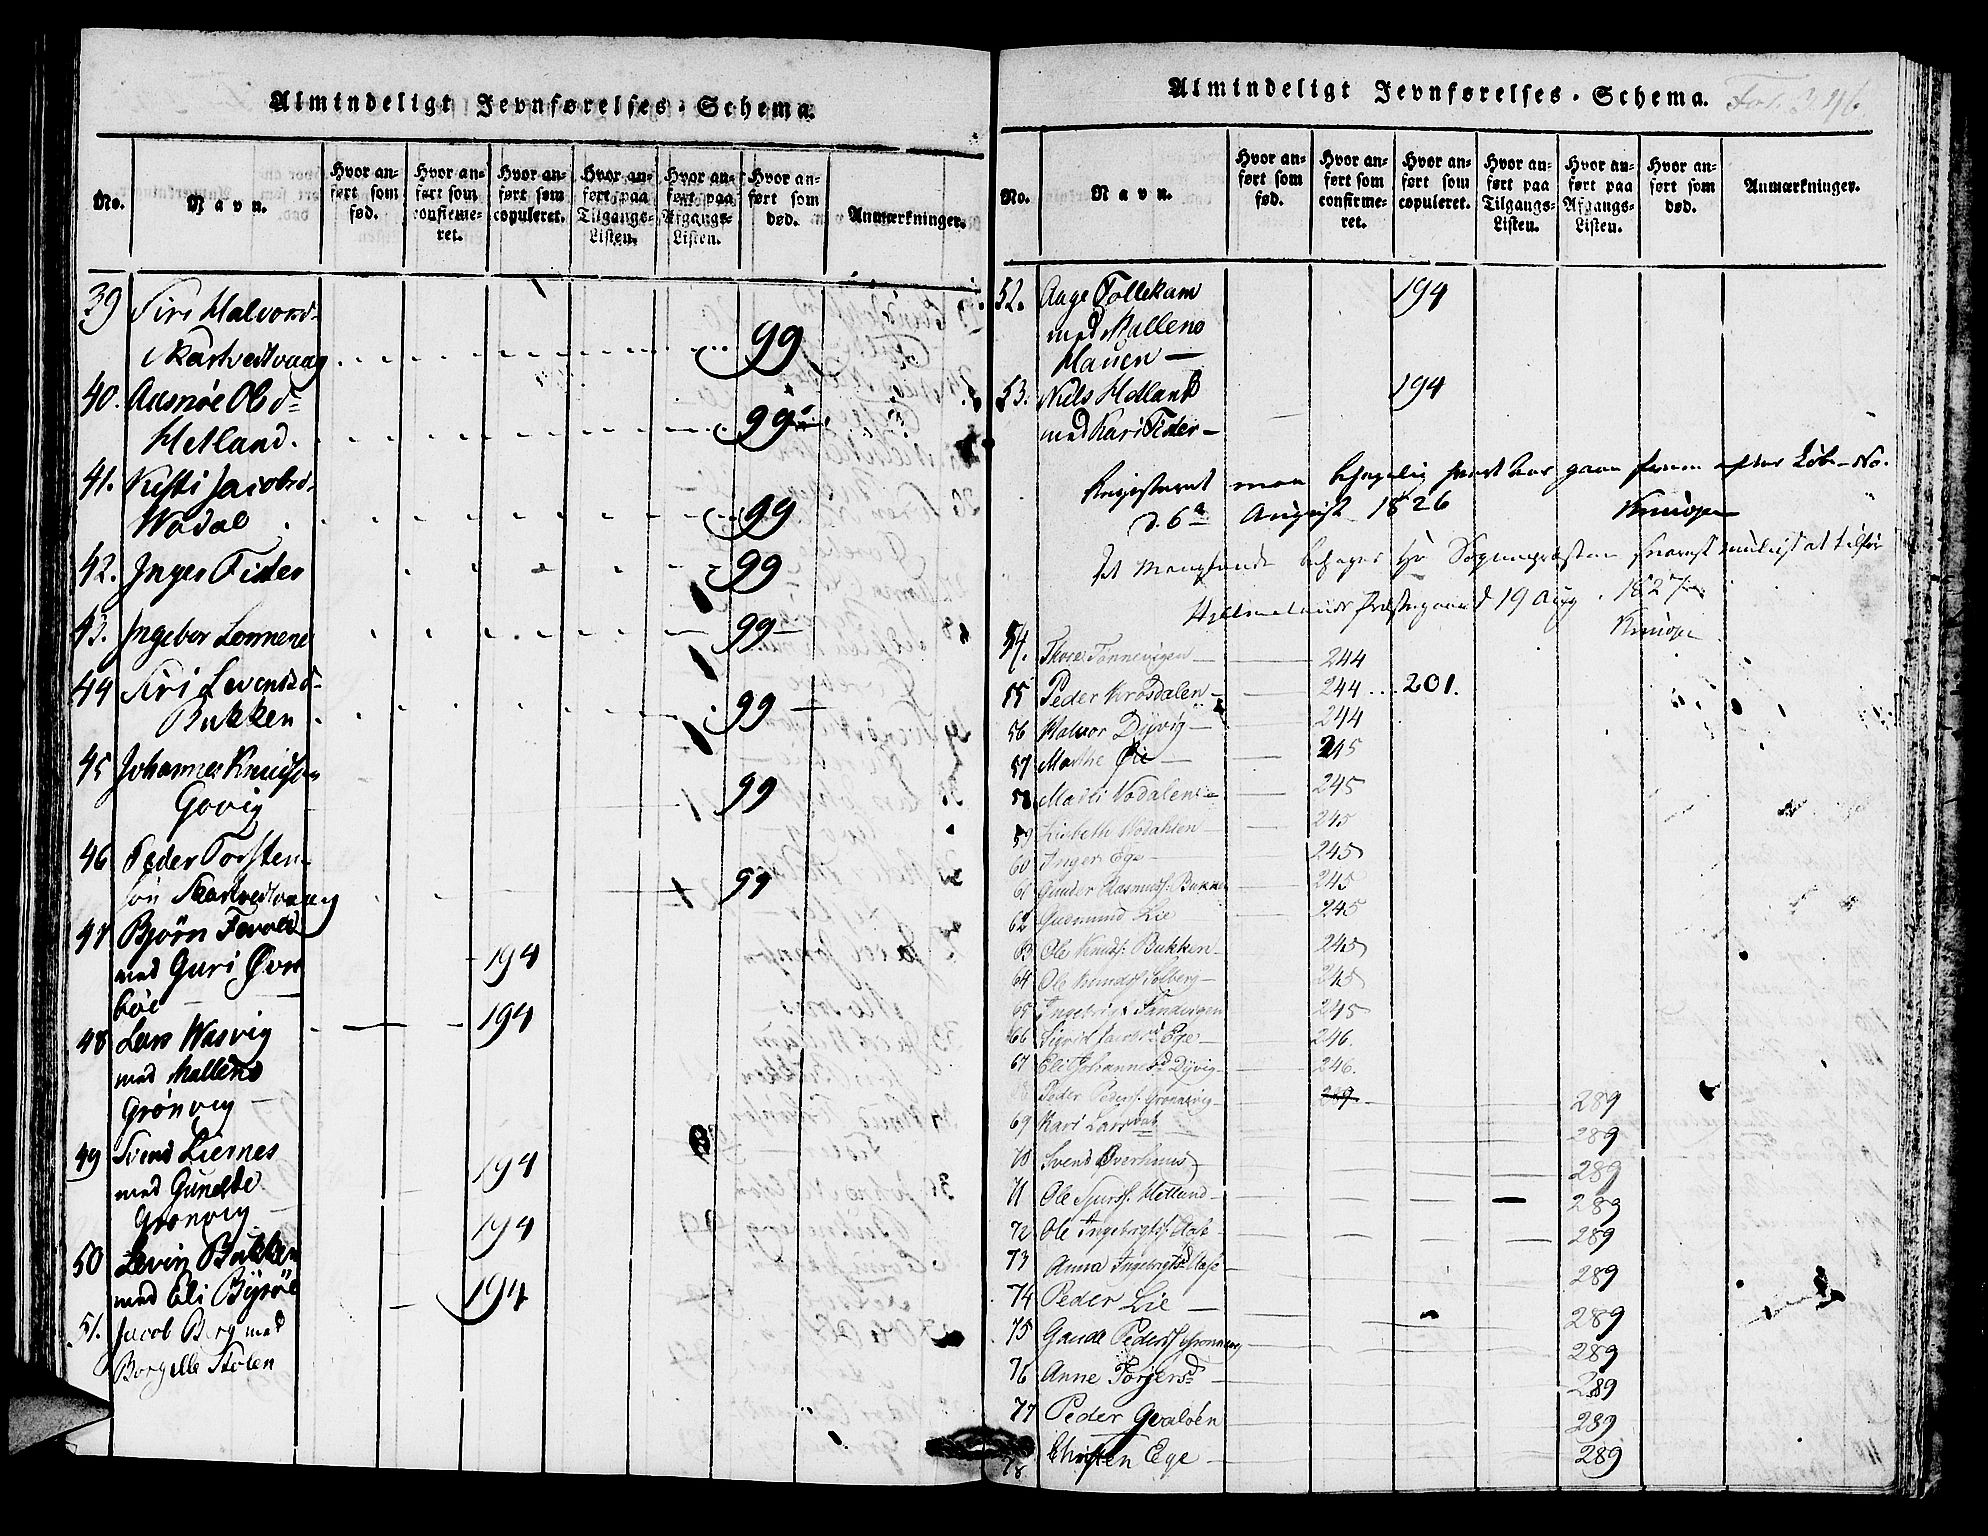 Almindeligt Jevnførelses-Schema.
No.
Navn.
Hvor anført som fød.
Hvor anført som confirmeret.
Hvor anført som copuleret.
Hvor anført paa Tilgangs-Listen.
Hvor anført paa Afgangs-Listen.
Hvor anført som død.
Anmærkninger.
39 Siri Halvord-
Skartvedtvaag 99
40. Aasnøe Olsd=
Hetland. 99
41. Kisti Jacobsd.
Wodal 99
42. Inger Fister 99
43. Ingebor Lomnene 99
44 Siri Levensd-
Bukken 99
45 Johannes Knudson
Govig 99
46 Peder Torsten-
søn Skartvedtvaag 99
47 Bjørn
med Guri Øvre
bøe 194
48 Lars Wasvig 194
med Mallene
Grønvig
49 Svend Liernes 194
med Gunelde
Grønvig 194
50 Levin Bukken
med Eli Byrøe 194
51. Jacob Berg med
Borgelle Stolen
Almindeligt Jevnførelses-Schema. Fol. 346.
No.
Navn.
Hvor anført som fød.
Hvor anført som confirmeret.
Hvor anført som copuleret.
Hvor anført paa Tilgangs-Listen.
Hvor anført paa Afgangs-Listen.
Hvor anført som død.
Anmærkninger.
52. Aage Tollekam 194
med Mallene
Hauen
53. Niels Hetland 194
med Kari Fister
Registeret maa gaae frem efter Løbe-No.
d. 6te August 1826
Det Manglende behager Hr Sognepræsten snarest muligst at tilfør
Hjelmelands Præstegaard d 19 Aug. 1827
54. Thore Tønnevigen 244
55 Peder Krosdalen 244 201.
56 Halvor Dyvig 244
57 Marthe Øie 245
58 Marti Vodalene 245
59 Lisbeth Wodahlen 245
60 Inger Ege 245
61 Guder Rasmuss. Bukken 245
62 Gudmund Lie 245
63 Ole Knuds. Bukken 245
64 Ole Knuds. Solberg 245
65 Ingebrigt Tandergen 245
66 Sigrid Jacobsd Ege 246.
67 Eli Johannesd Dyvig 246.
Peder Peders. Grønnevig 289
69 Kari Larsdat 289
70 Svend Øverhuus 289
71 Ole Sjurss. Hetland 289
72 Ole Ingebrigts. Aase 289
73 Anna Ingebrigtsd Aase 289
74 Peder Lie 289
75 Gaude Peders. Grønnevig 289
76 Anne Torjersd 289
77 Peder Qvaløen 289
78 Christen Ege 289